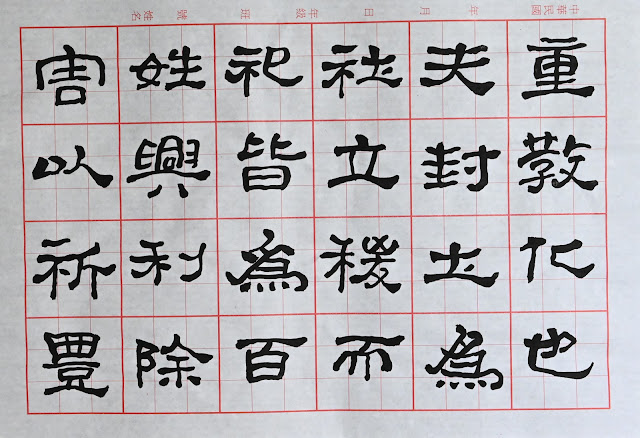 中華民國 年 月 日 年級 班 號 姓名
重教化也
夫封土爲
社立稷而
祀皆爲百
姓興利除
害以祈豊